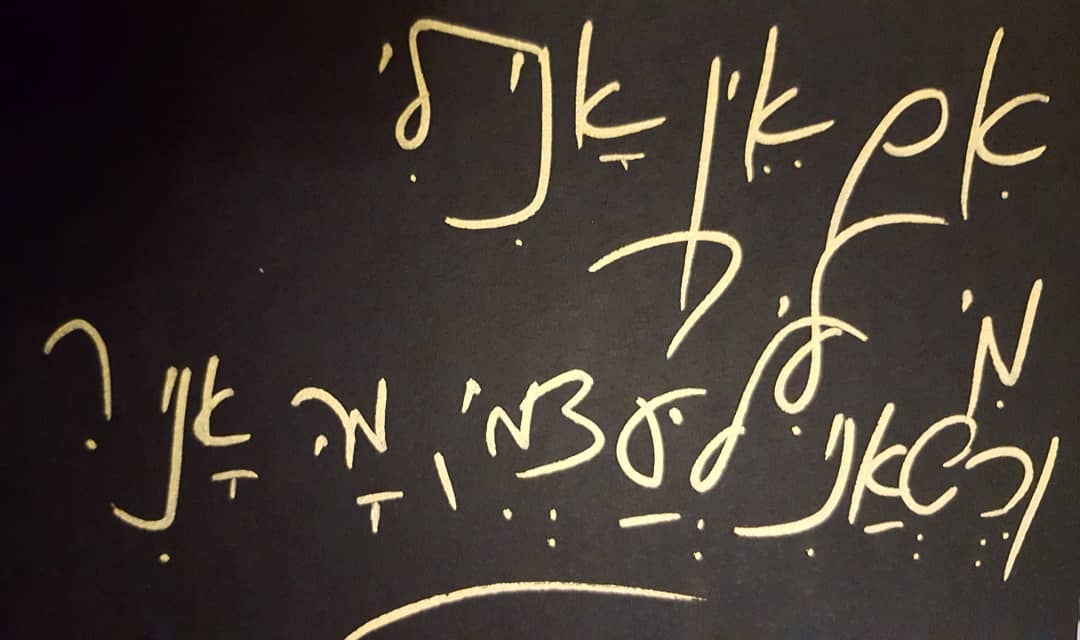 אִם אֵין אָנִי לִי
מִי לִי
וכֶשְאַנִי לְעַצְמִי, מָה אָנִי?